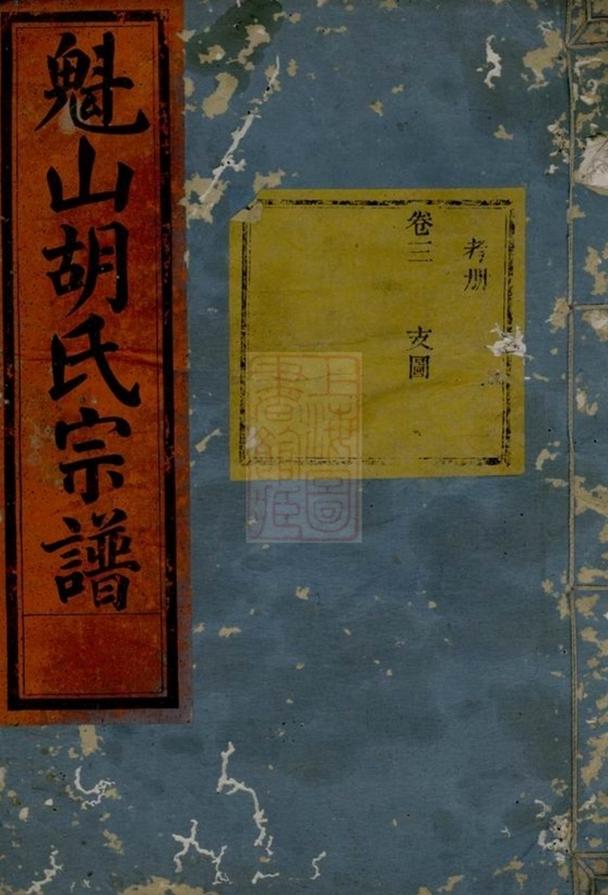 魁山胡氏宗譜
考册
卷三 支圖
上海圖書館藏